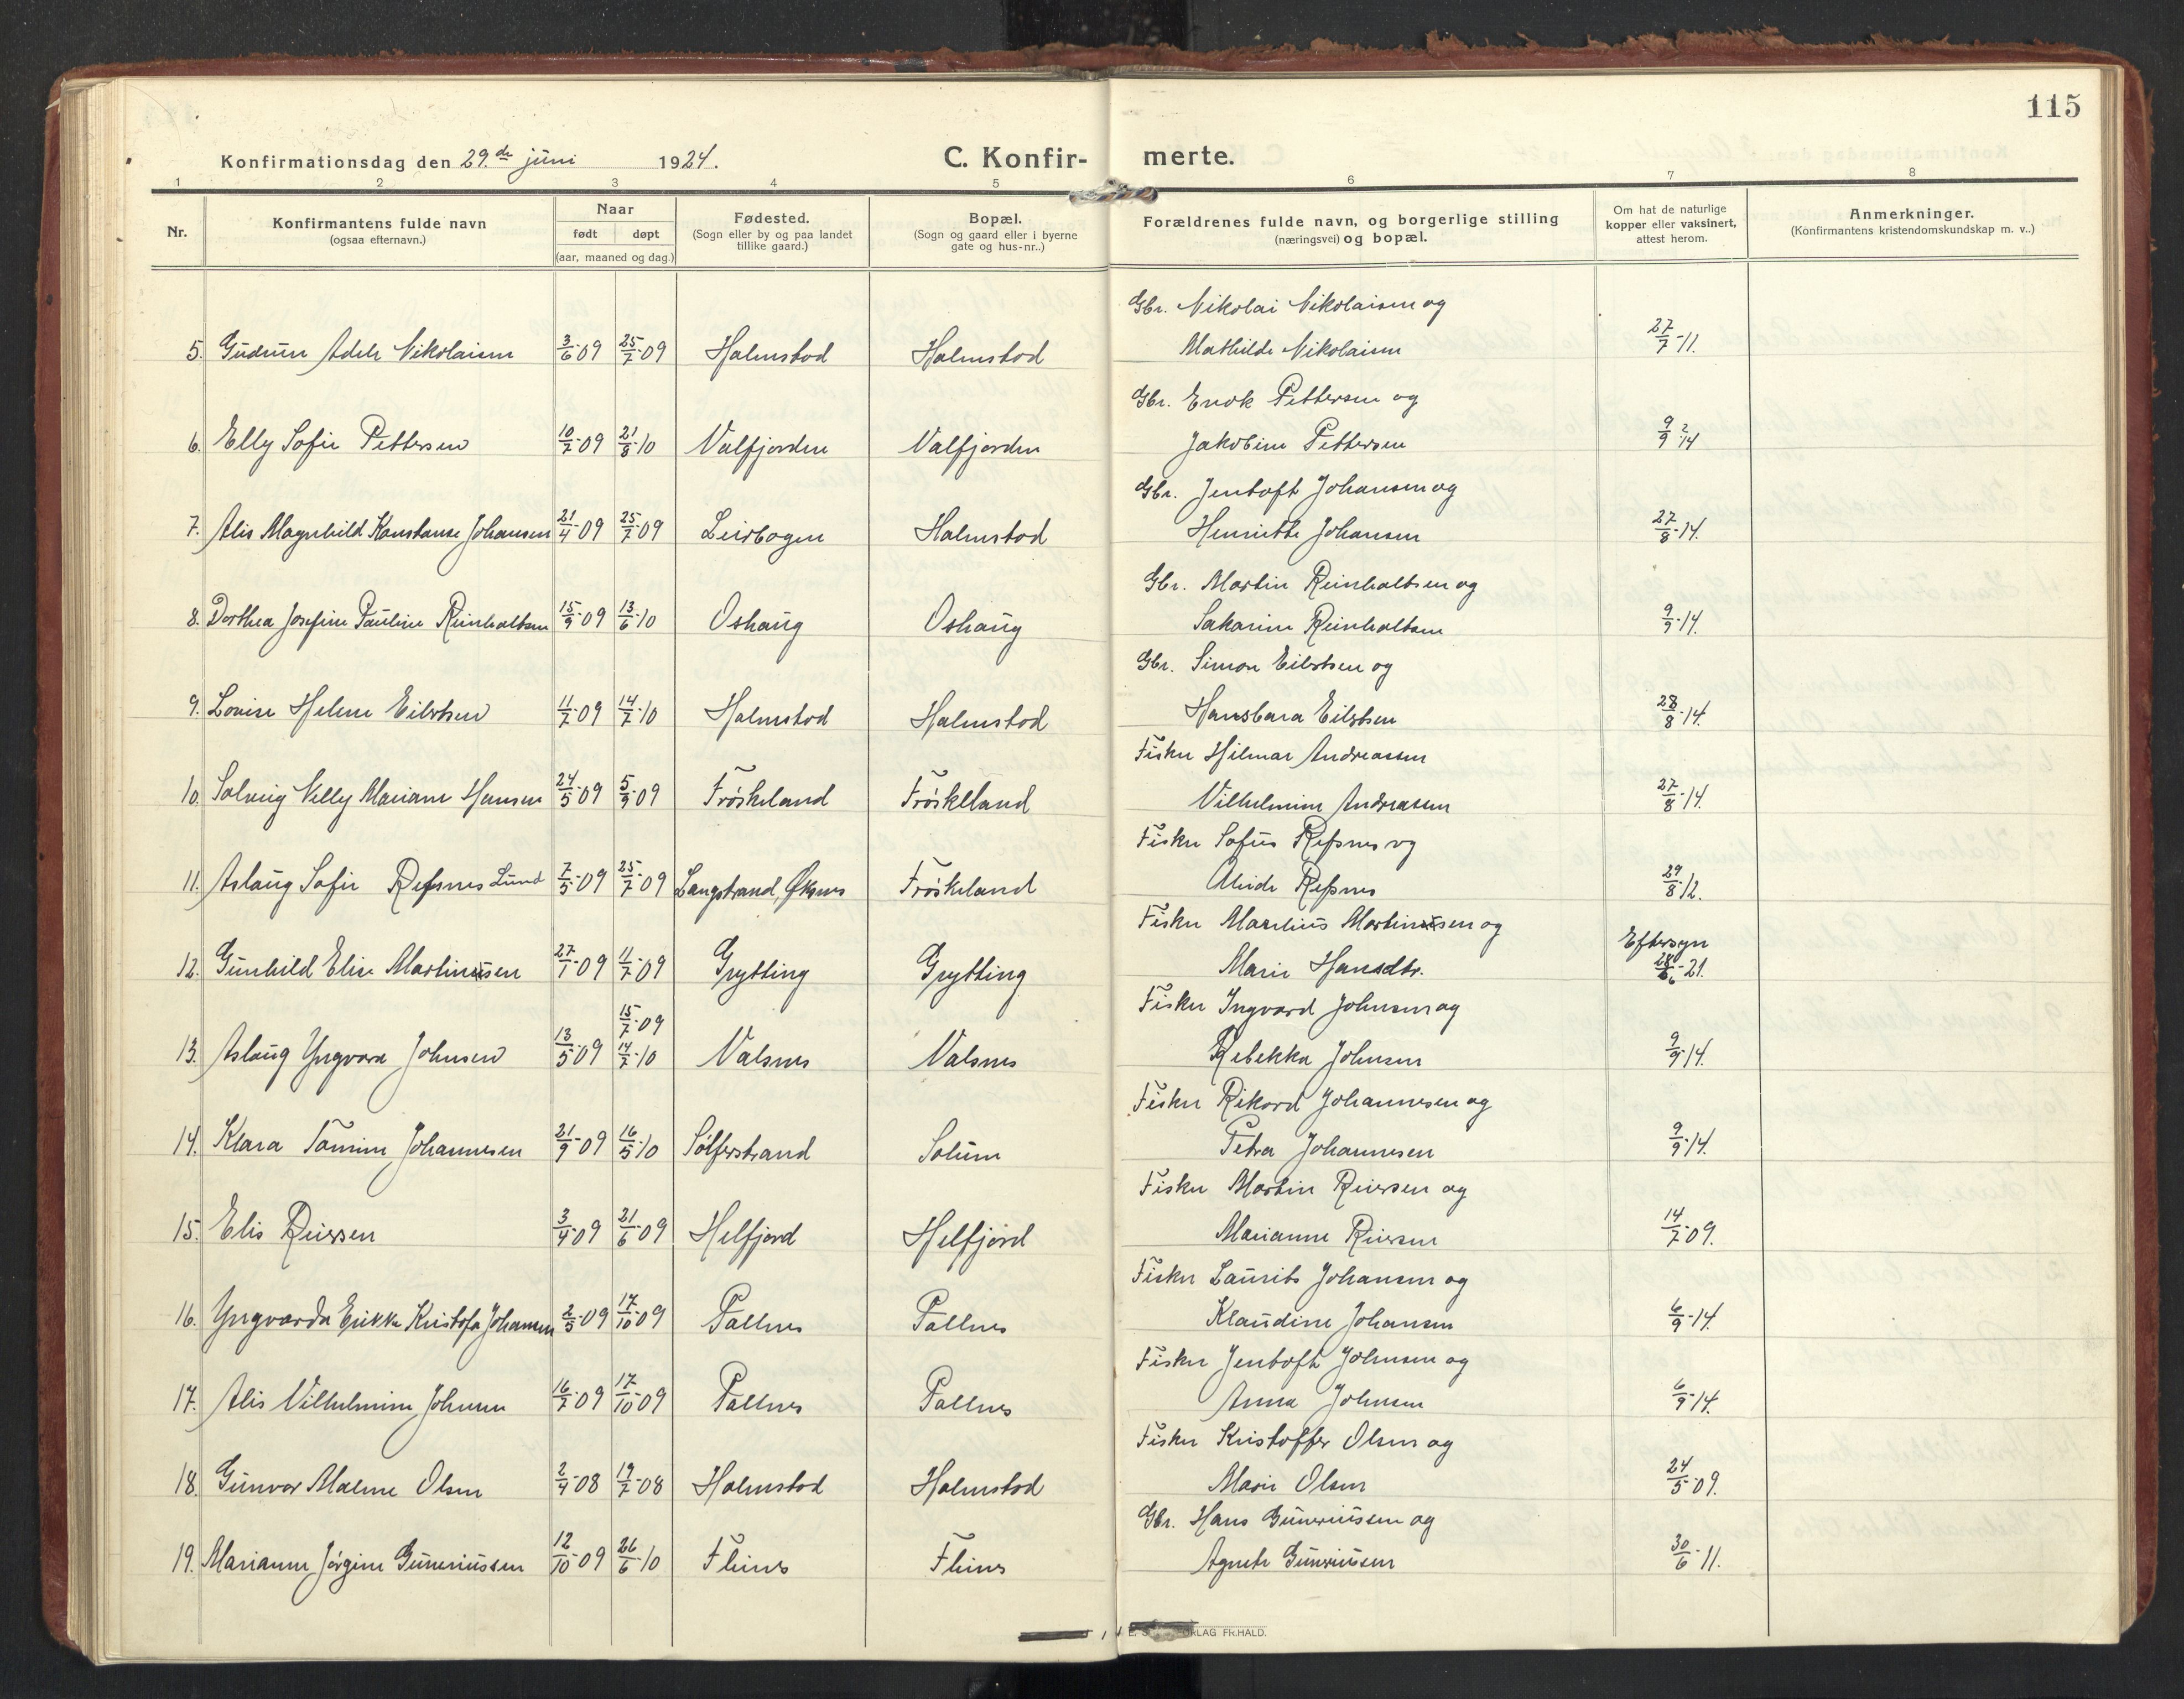 115
Konfirmationsdag den 29.de juni 1924.
C. Konfir- merte.
1 2 3 4 5 6 7 8
Nr.
Konfirmantens fulde navn
(ogsaa efternavn.)
Naar
født døpt
(aar, maaned og dag.)
Fødested.
(Sogn eller by og paa landet
tillike gaard.)
Bopæl.
(Sogn og gaard eller i byerne
gate og hus-nr..)
Forældrenes fulde navn, og borgerlige stilling
(næringsvei) og bopæl.
Om hat de naturlige
kopper eller vaksinert,
attest herom.
Anmerkninger.
(Konfirmantens kristendomskundskap m. v..)
Gbr. Nikolai Nikolaisen og
5. Gudrun Adele Nikolaisen 3/6-09 25/7-09 Halmstad Halmstad Mathilde Nikolaisen 27/7-11.
Gbr. Enok Pettersen og
6. Elly Sofie Pettersen 10/7-09 21/8-10 Valfjorden Valfjorden Jakobine Pettersen 9/9 14
Gbr. Jentoft Johansen og
7. Alis Magnhild Konstanse Johansen 21/4-09 25/7-09 Leirbogen Halmstad Henriette Johansen 27/8-14.
Gbr. Martin Reinholtsen og
8. Dorthea Josefine Pauline Reinholtsen 15/9-09 13/6-10 Oshaug Oshaug Sakarine Reinholtsen 9/9-14.
Gbr. Simon Eilertsen og
9. Lovise Helene Eilertsen 11/7-09 14/7-10 Halmstad Halmstad Hansbara Eilertsen 28/8-14.
Fisker Hilmar Andreassen
10. Solveig Nelly Mariane Hansen 24/5-09 5/9-09 Frøskeland Frøskeland Vilhelmine Andreassen 27/8-14.
Fisker Sofus Refsnes og
11. Aslaug Sofie Refsnes Lund 7/5-09 25/7-09 Langstrand, Øksnes Frøskeland Alvide Refsnes 29/8-12.
Fisker Marelius Martinussen og
12. Gunhild Elise Martinussen 27/1-09 11/7-09 Grytting Grytting Marie Hansdtr. Eftersyn 28/6-21.
Fisker Ingvard Johnsen og
13. Aslaug Yngvora Johnsen 13/5-09 15/7-09 14/7-10 Valsnes Valsnes Rebekka Johnsen 9/9-14.
Fisker Rikard Johannesen og
14. Klara Tomine Johannesen 21/9-09 16/5-10 Sølferstrand Solum Petra Johannesen 9/9-14.
Fisker Martin Reiersen og
15. Elis Reiersen 3/4-09 21/6-09 Helfjord Helfjord Marianne Reiersen 14/7-09.
Fisker Laurits Johansen og
16. Yngvarda Erikke Kristofa Johansen 2/5-09 17/10-09 Pollnes Pollnes Klaudine Johansen 6/9-14.
Fisker Jentoft Johnsen og
17. Alis Vilhelmine Johnsen 16/7-09 17/10-09 Pollnes Pollnes Anna Johnsen 6/9-14.
Fisker Kristoffer Olsen og
18. Gunvor Malene Olsen 2/4-08 19/7-08 Halmstad Halmstad Marie Olsen 24/5-09.
Gbr. Hans Guneriussen og
19. Marianne Jørgine Guneriussen 12/10-09 26/6-10 Flines Flines Agnete Guneriussen 30/6-11.
RLAG FR.HALD.